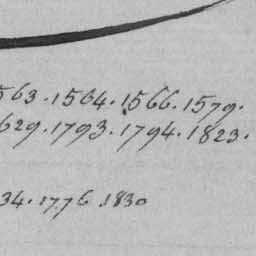 563.1564.1566.1579.
629.1793.1794.1823.
34.1776.1830